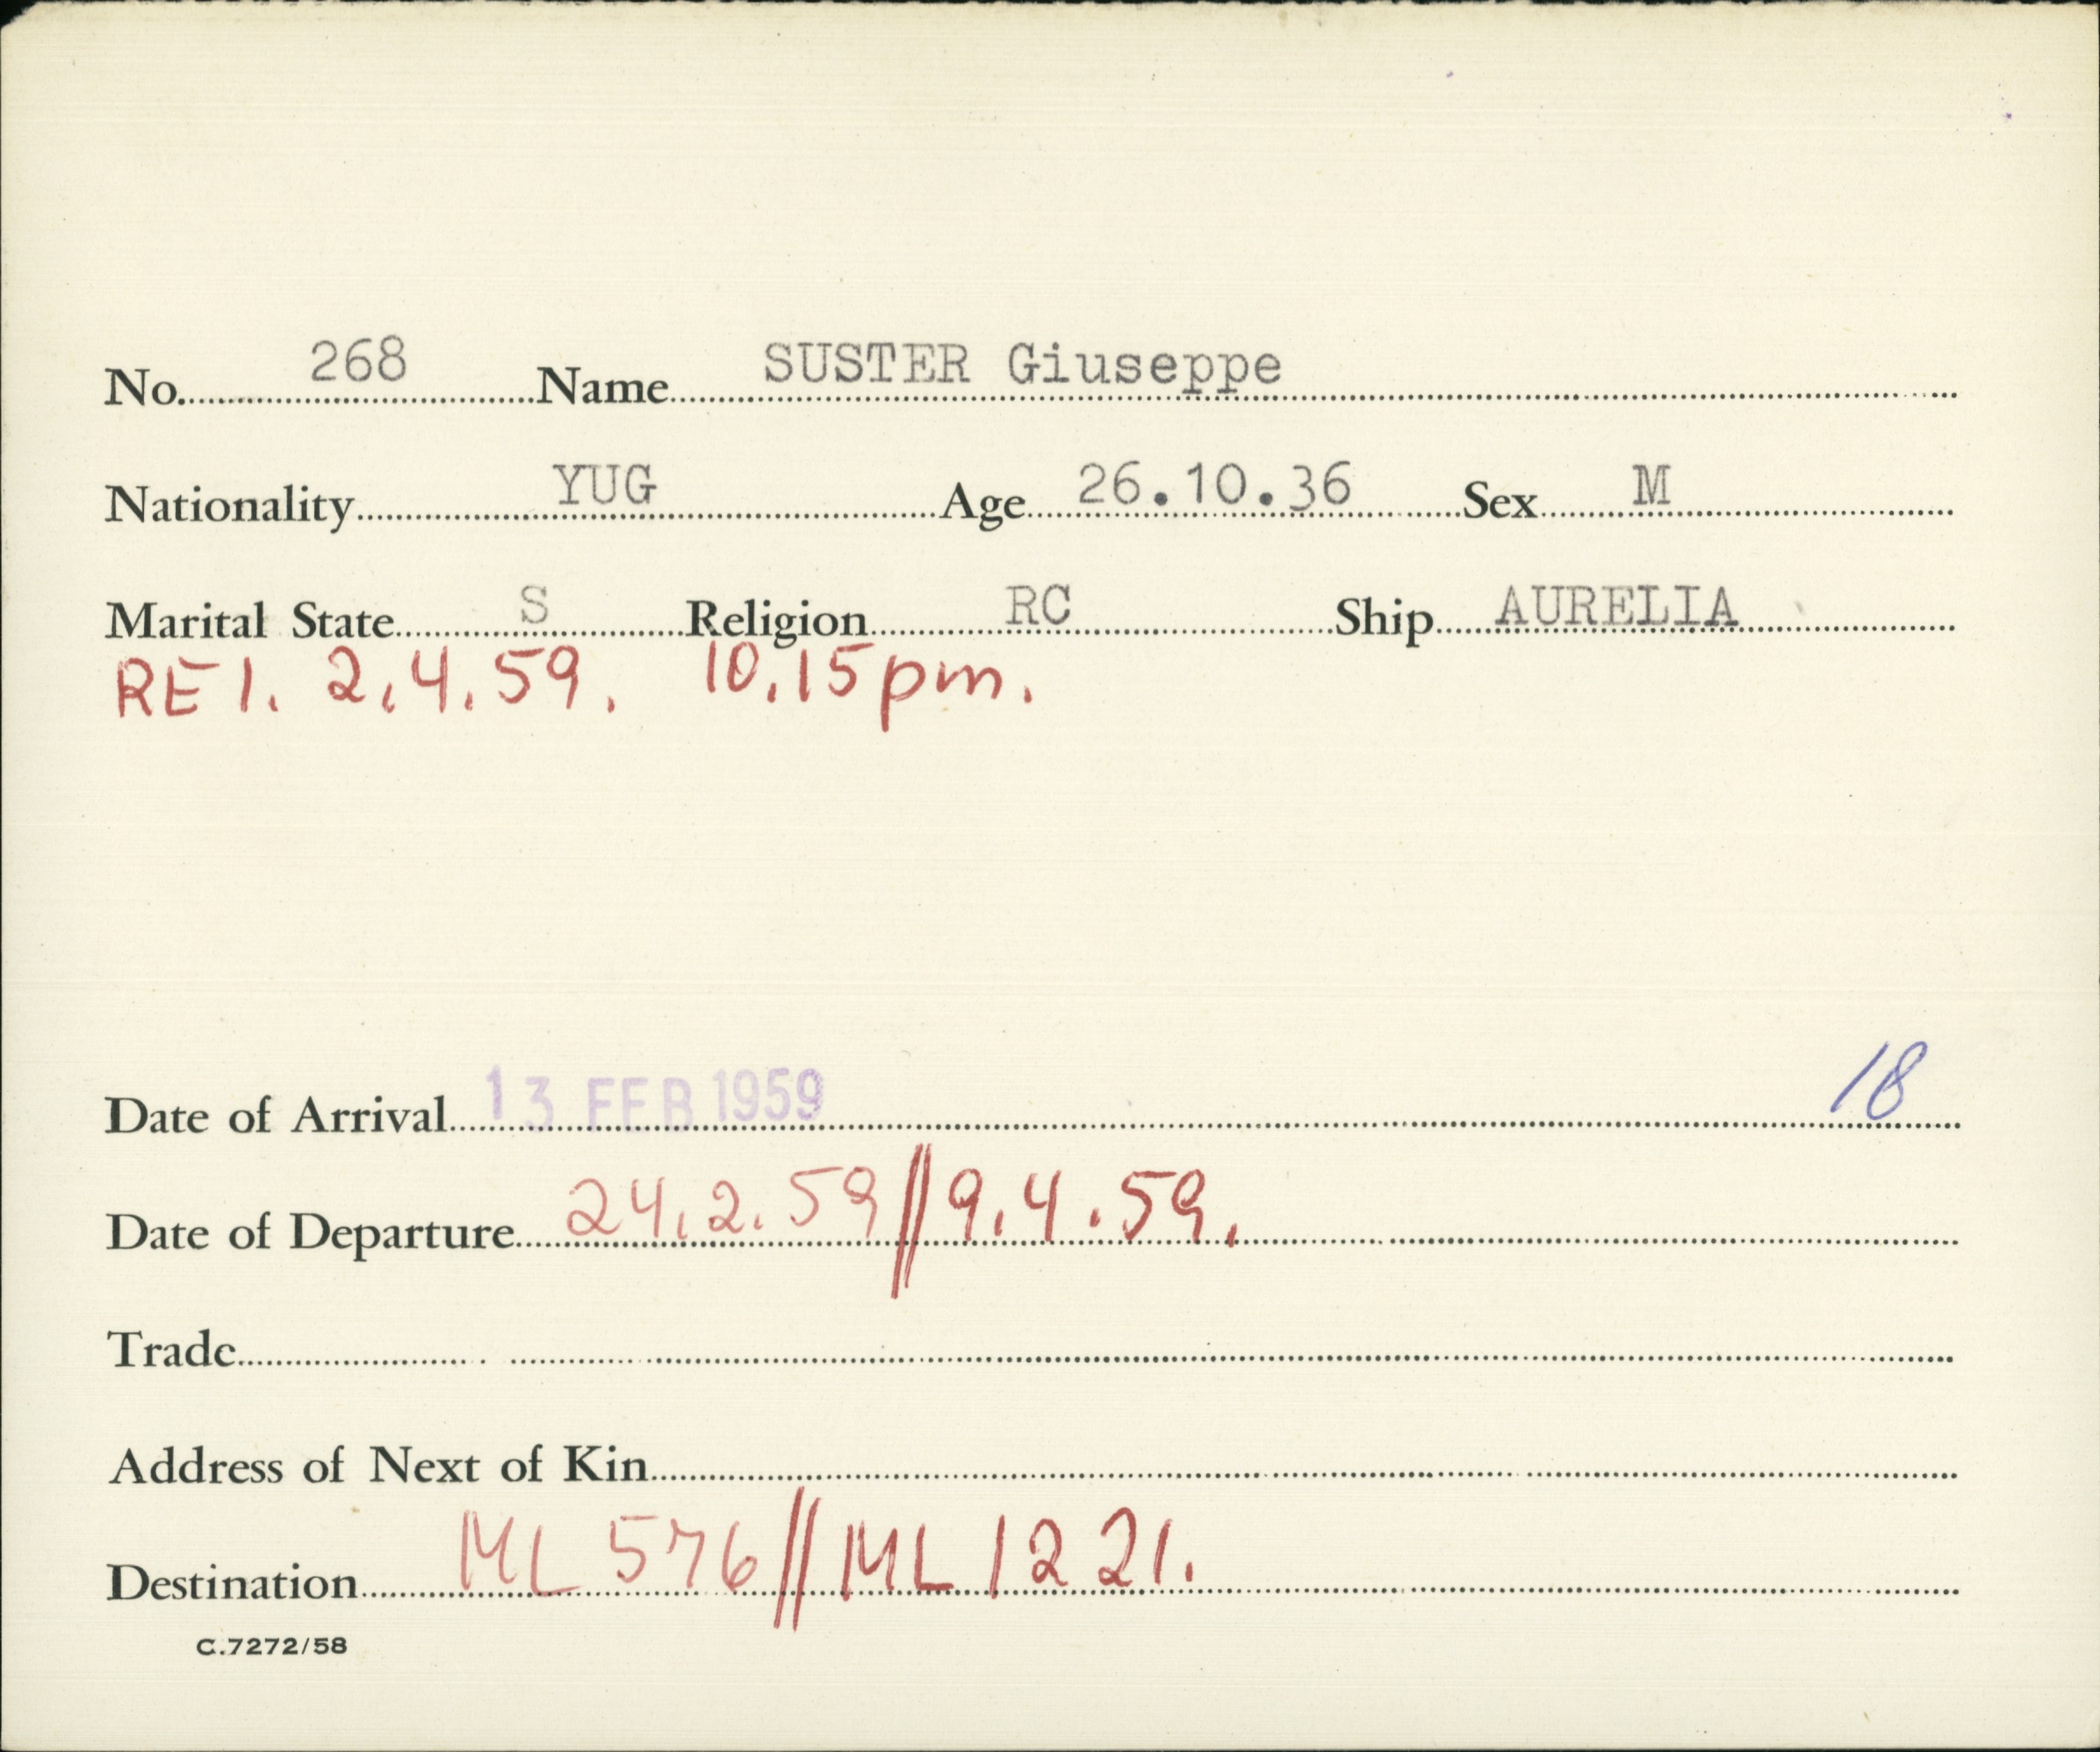 No. 268 Name SUSTER Giuseppe
Nationality YUG Age 26.10.36 Sex M
Marital State S Religion RC Ship AURELIA
RE 1. 2.4.59. 10.15 pm.
18
Date of Arrival 13 FEB 1959
Date of Departure 24.2.59 // 9.4.59.
Trade
Address of Next of Kin
Destination ML 576 // ML 1221.
C.7272/58